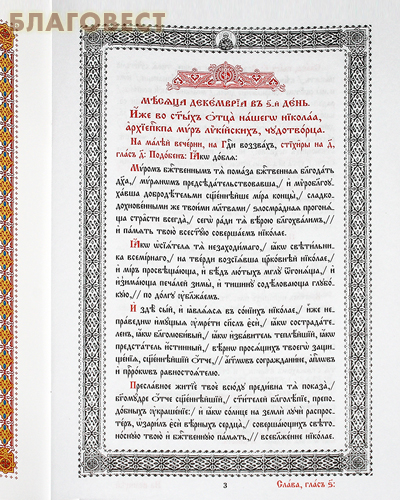 БЛАГОВЕСТ
Мѣсѧца декемврїа въ ѕ҃-й день.
Иже во ст҃ыхъ ѻтца̀ нашегѡ нїколаа,
архїепⷭ҇кпа мѵръ лѷкїйскихъ, чꙋдотворца.
На малѣй вечерни, на Гдⷭ҇и воззвахъ, стїхиры на д҃,
гласъ д҃: Подобенъ: Ꙗкѡ добля:
Мѵромъ бж҃твеннымъ тѧ̀ помаза бж҃твеннаѧ благодать
дх҃а,/ мѵрѧнѡмъ предсѣдательствовавша,/ и мѵроблагоꙋ-
хавша добродѣтельми сщ҃еннѣйше мїра концы̀,/ сладко-
дохновенными же твоими мл҃твами/ злосмраднаѧ прогонѧ-
ша страсти всегда̀,/ сегѡ̀ ради тѧ̀ вѣрою благохвалимъ,//
и память твою всест҃ꙋю совершаемъ нїколае.
Ꙗкѡ ѡсїѧтелѧ тѧ̀ незаходимаго,/ ꙗкѡ свѣтильни-
ка всемїрнаго,/ на тверди возсїѧвша церковнѣй нїколае,/
и мїръ просвѣщающа,/ и бѣдъ лютыхъ мглꙋ̀ ѿгонѧща,/ и
изимающа печалей зимы̀, и тишинꙋ̀ содѣловающа глꙋбо-
кꙋю,// по долгꙋ ᲂублажаемъ.
И здѣ сый, и ꙗвлѧѧсѧ въ сонїихъ нїколае,/ иже не-
праведнѡ имꙋщыѧ ᲂумрети сп҃слъ єсѝ,/ ꙗкѡ сострадате-
ленъ, ꙗкѡ благолюбивый,/ ꙗкѡ избавитель теплѣйшїй, ꙗкѡ
предстатель истинный,/ вѣрнѡ просѧщихъ твоегѡ̀ защи-
щенїѧ, сщ҃еннѣйшїй ѻтче,// агг҃лѡвъ согражданине, ап҃лѡвъ
и пр҃рокѡвъ равностоѧтелю.
Преславное житїе твоѐ всюдꙋ предивна тѧ̀ показа̀,/
бг҃омꙋдре ѻтче сщ҃еннѣйшїй,/ ст҃ителей благолѣпїе, препо-
добныхъ ᲂукрашенїе:/ и ꙗкѡ солнце на землѝ лꙋчѝ распрос-
теръ, ᲂузарилъ єсѝ вѣрныхъ сердца̀,/ совершающихъ свѣто-
носнꙋю твою̀ и бж҃твеннꙋю память,// всеблаженне нїколае.
3
Слава, гласъ ѕ҃: